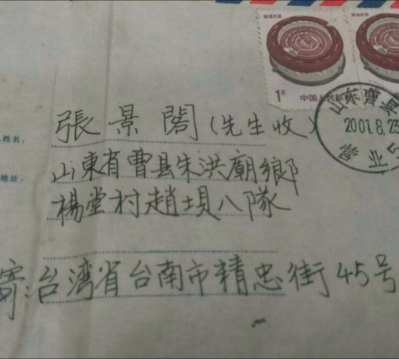 1元
中国人民邮政
山东曹
2001.8.23
業
張景閣(先生收)
姓名,
山東省曹县朱洪廟鄉
地址,
楊堂村趙垻八隊
寄:台湾省台南市精忠街45号